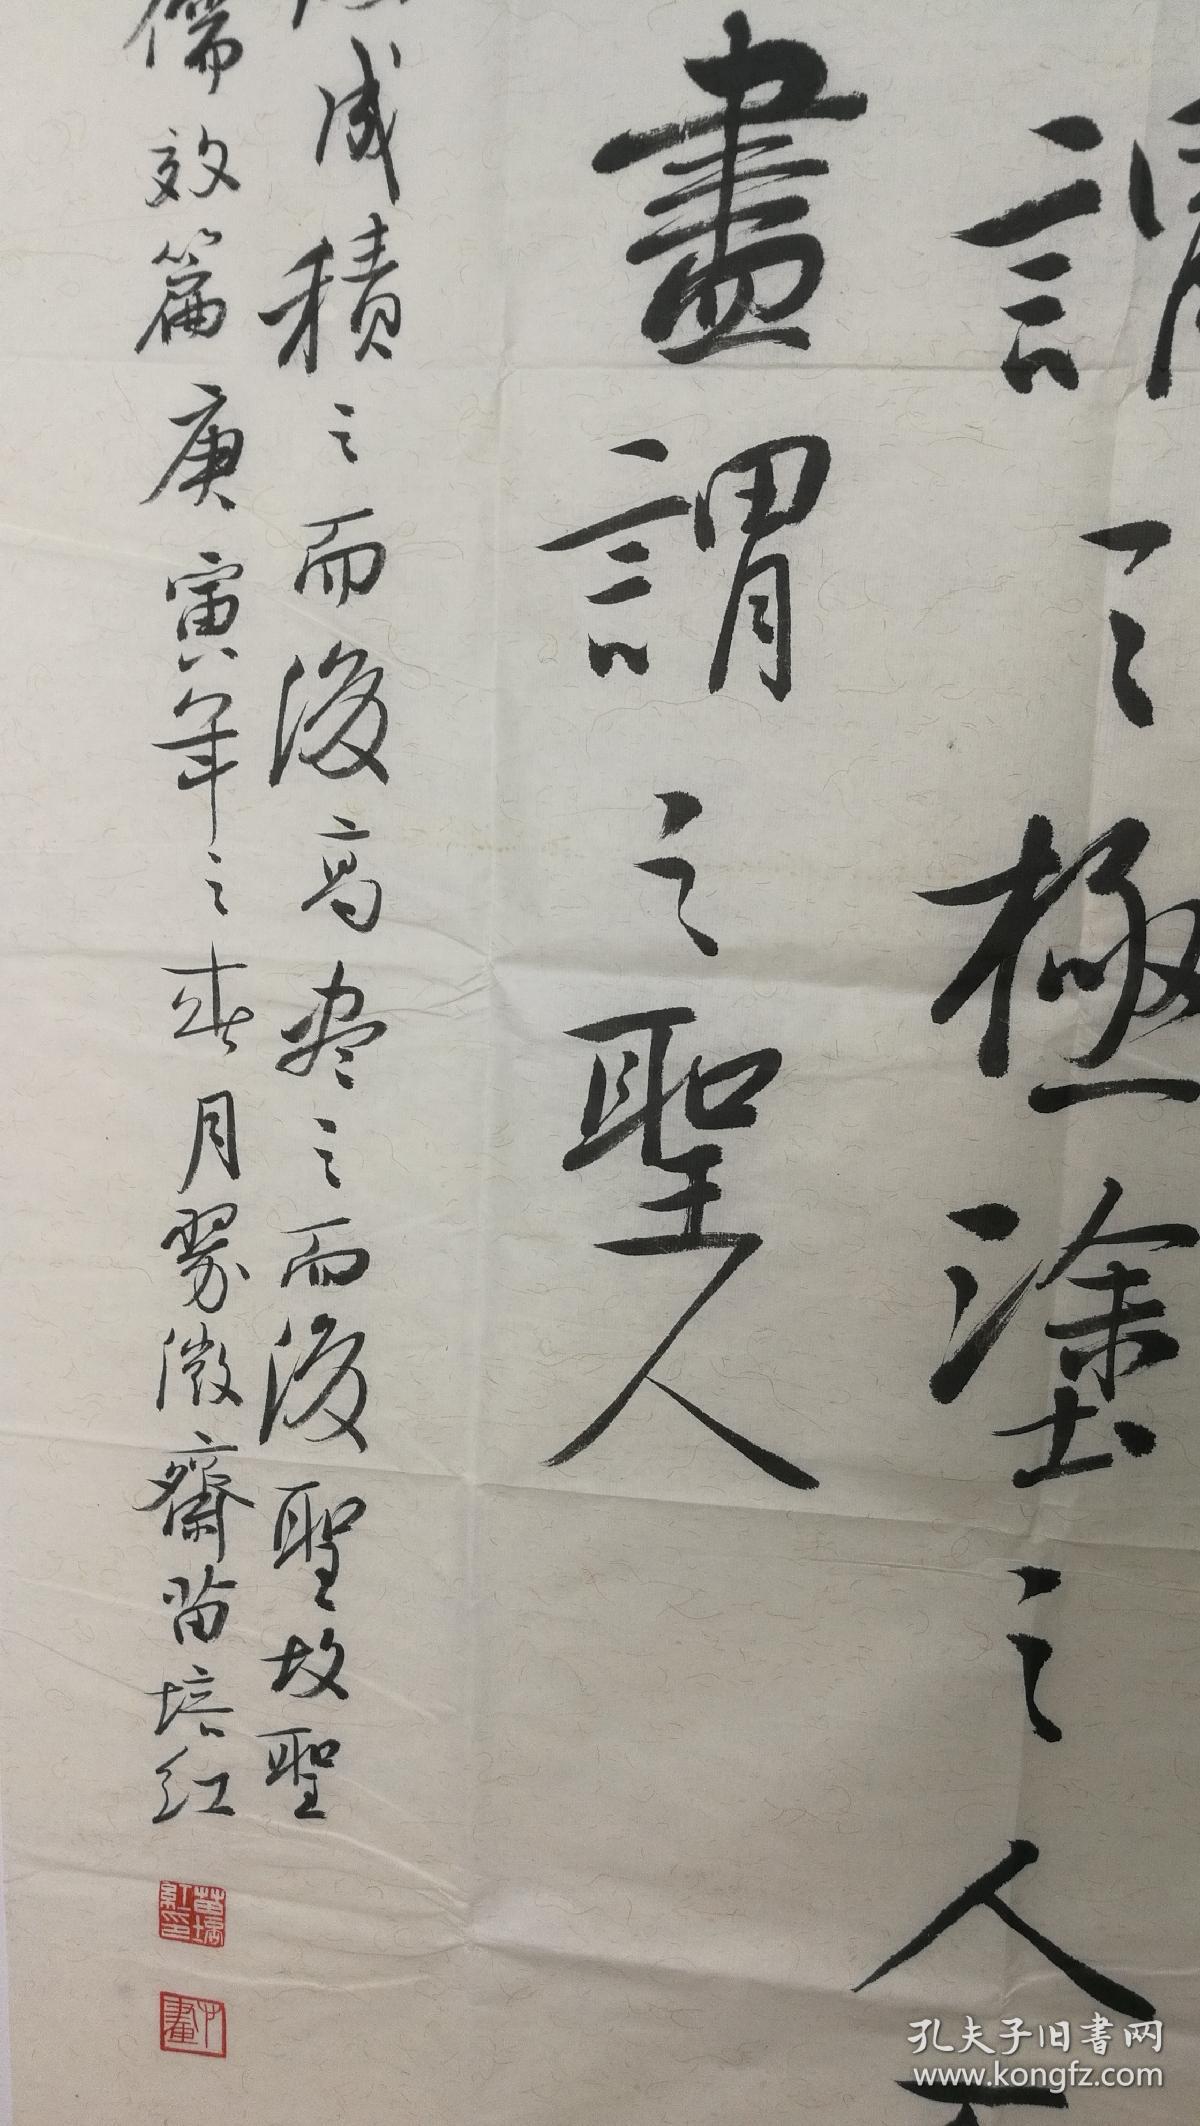 謂之極塗之人百
盡謂之聖人
成積之而後高尽之而後聖故聖
儒效篇庚寅年之春月翏微齋苗培红
苗培紅印
孔夫子旧書网
www.kongfz.com